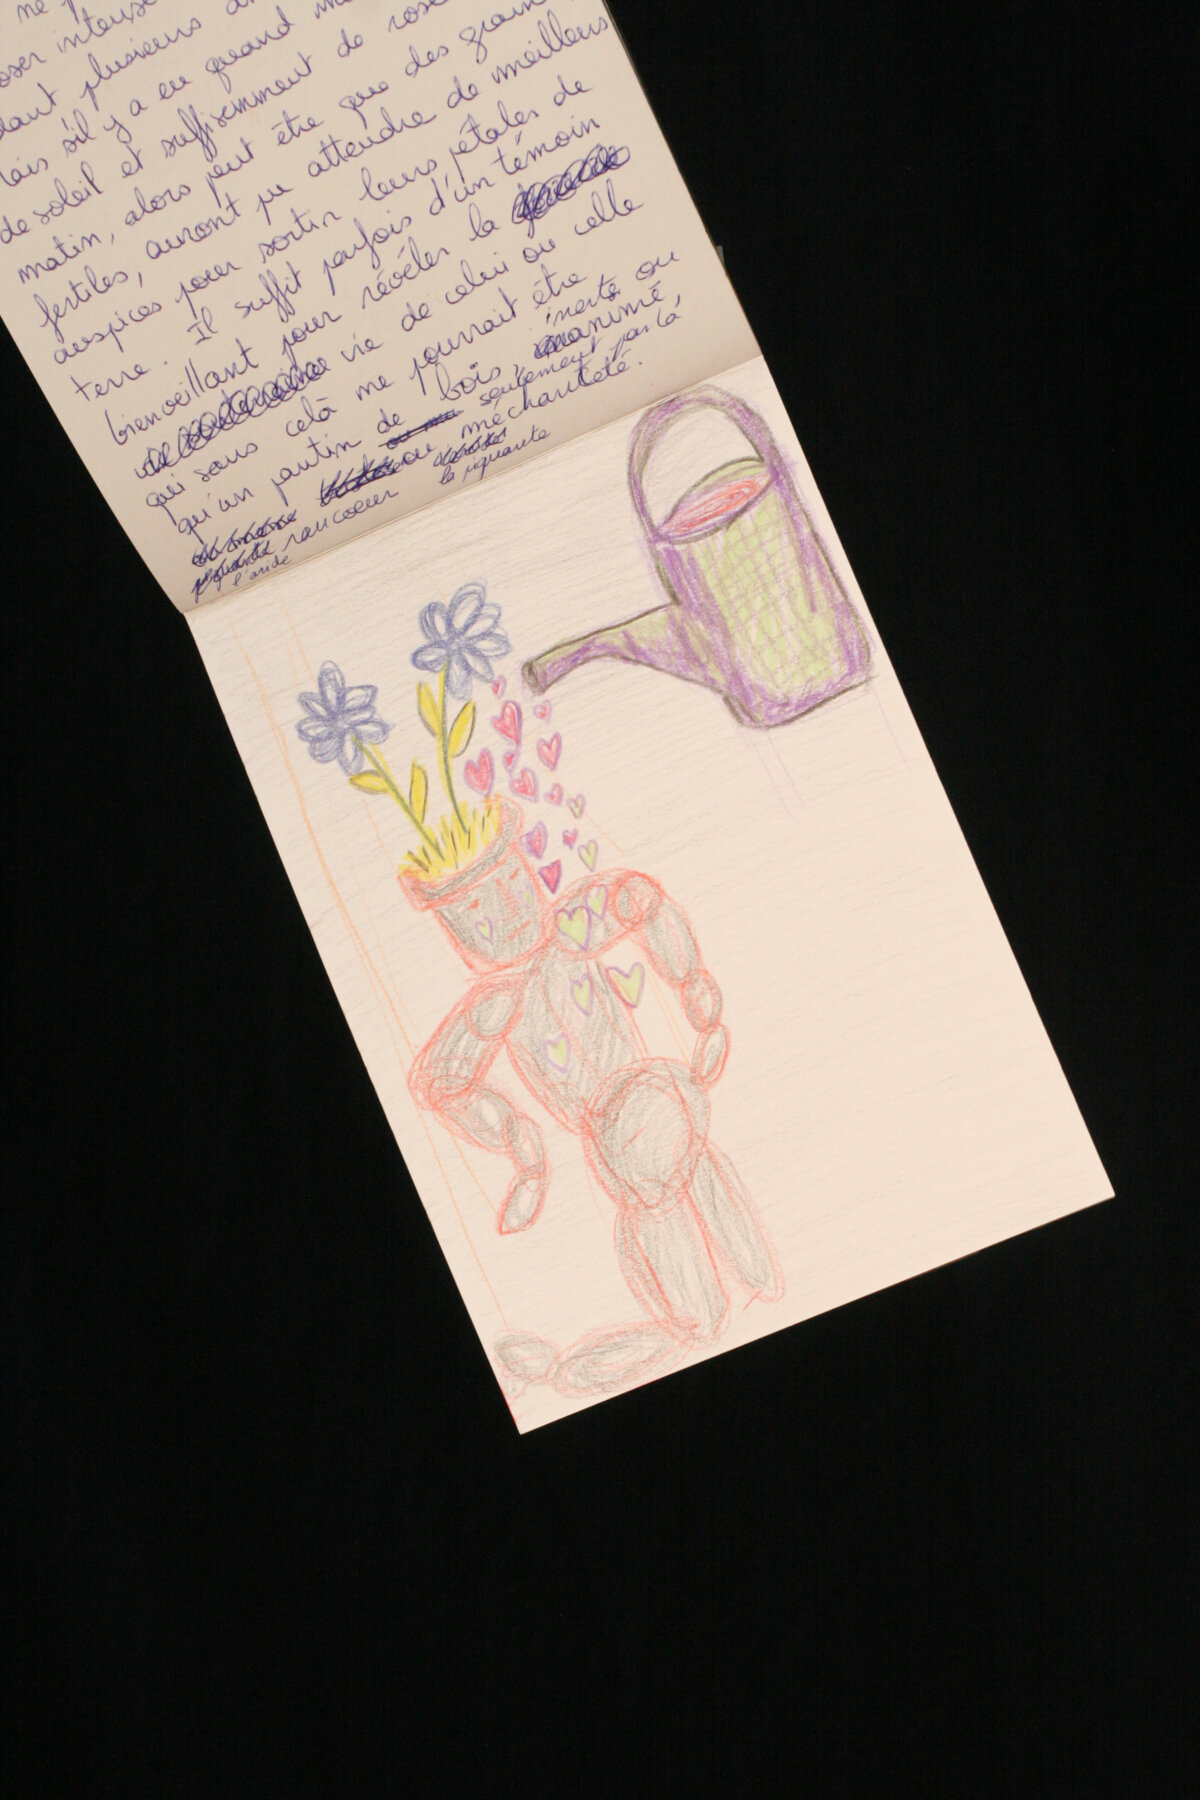 ne p
oser intense
dant plusieurs an
lais s'il y a eu quand m
de soleil et suffisemment de rosée
matin, alors peut être que des grain
fertiles, auront pu attendre de meilleurs
auspices pour sortir leurs pétales de
terre. Il suffit parfois d'un témoin
bienveillant pour révéler la
vie de celui ou celle
qui sans celà ne pourrait être
qu'un pantin de bois, inerte ou
inanimé,
seulement par la
ou méchanceté.
rancoeur la piquante
l'aride